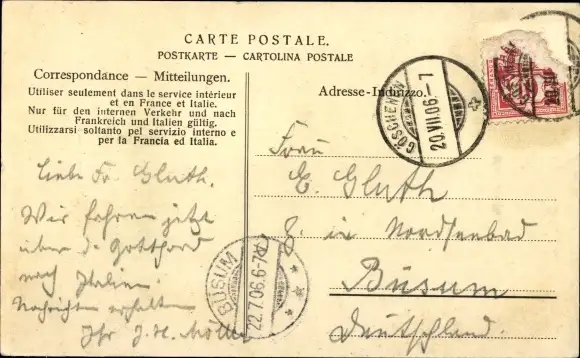 CARTE POSTALE.
POSTKARTE — CARTOLINA POSTALE
Correspondance — Mitteilungen.
Utiliser seulement dans le service intérieur
et en France et Italie.
Nur für den internen Verkehr und nach
Frankreich und Italien gültig.
Utilizzarsi soltanto pel servizio interno e
per la Francia ed Italia.
Liebe Fr. Gluth.
Wir fahren jetzt
über d. Gotthard
nach Italien.
Nachrichten erhalten
Ihr J. H.
Adresse-Indirizzo.
GÖSCHENEN
20.VII.06.-7
Frau
E. Gluth
z. in Nordseebad
Büsum
Deutschland.
BÜSUM
22.7.06.6-7